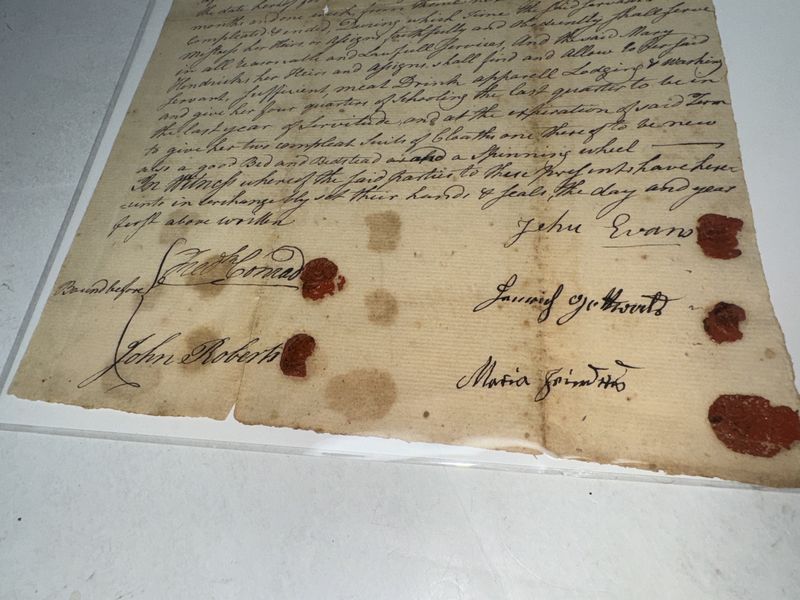 the date hereof for
months and one week from thence
Compleated & ended, During which Time the said Servant
Mistress her Heirs or Assigns faithfully and Obediently shall Serve
in all reasonable and Lawfull Services. And the said Mary
Hendricks her Heirs and Assigns shall find and allow to her said
Servant, Sufficient meat Drink apparell Lodging & Washing
and give her four quarters of Schooling the last quarter to be in
the last year of Servitude, and at the expiration of said Term
to give her two compleat Suits of Cloaths one thereof to be new
also a good Bed and Bedstead and a Spinning wheel
In Witness whereof the said Parties to these Presents have here-
unto interchangeably set their hands & Seals, the day and year
first above written
John Evans
Bound before
Fredk Conrad
John Roberts
Maria